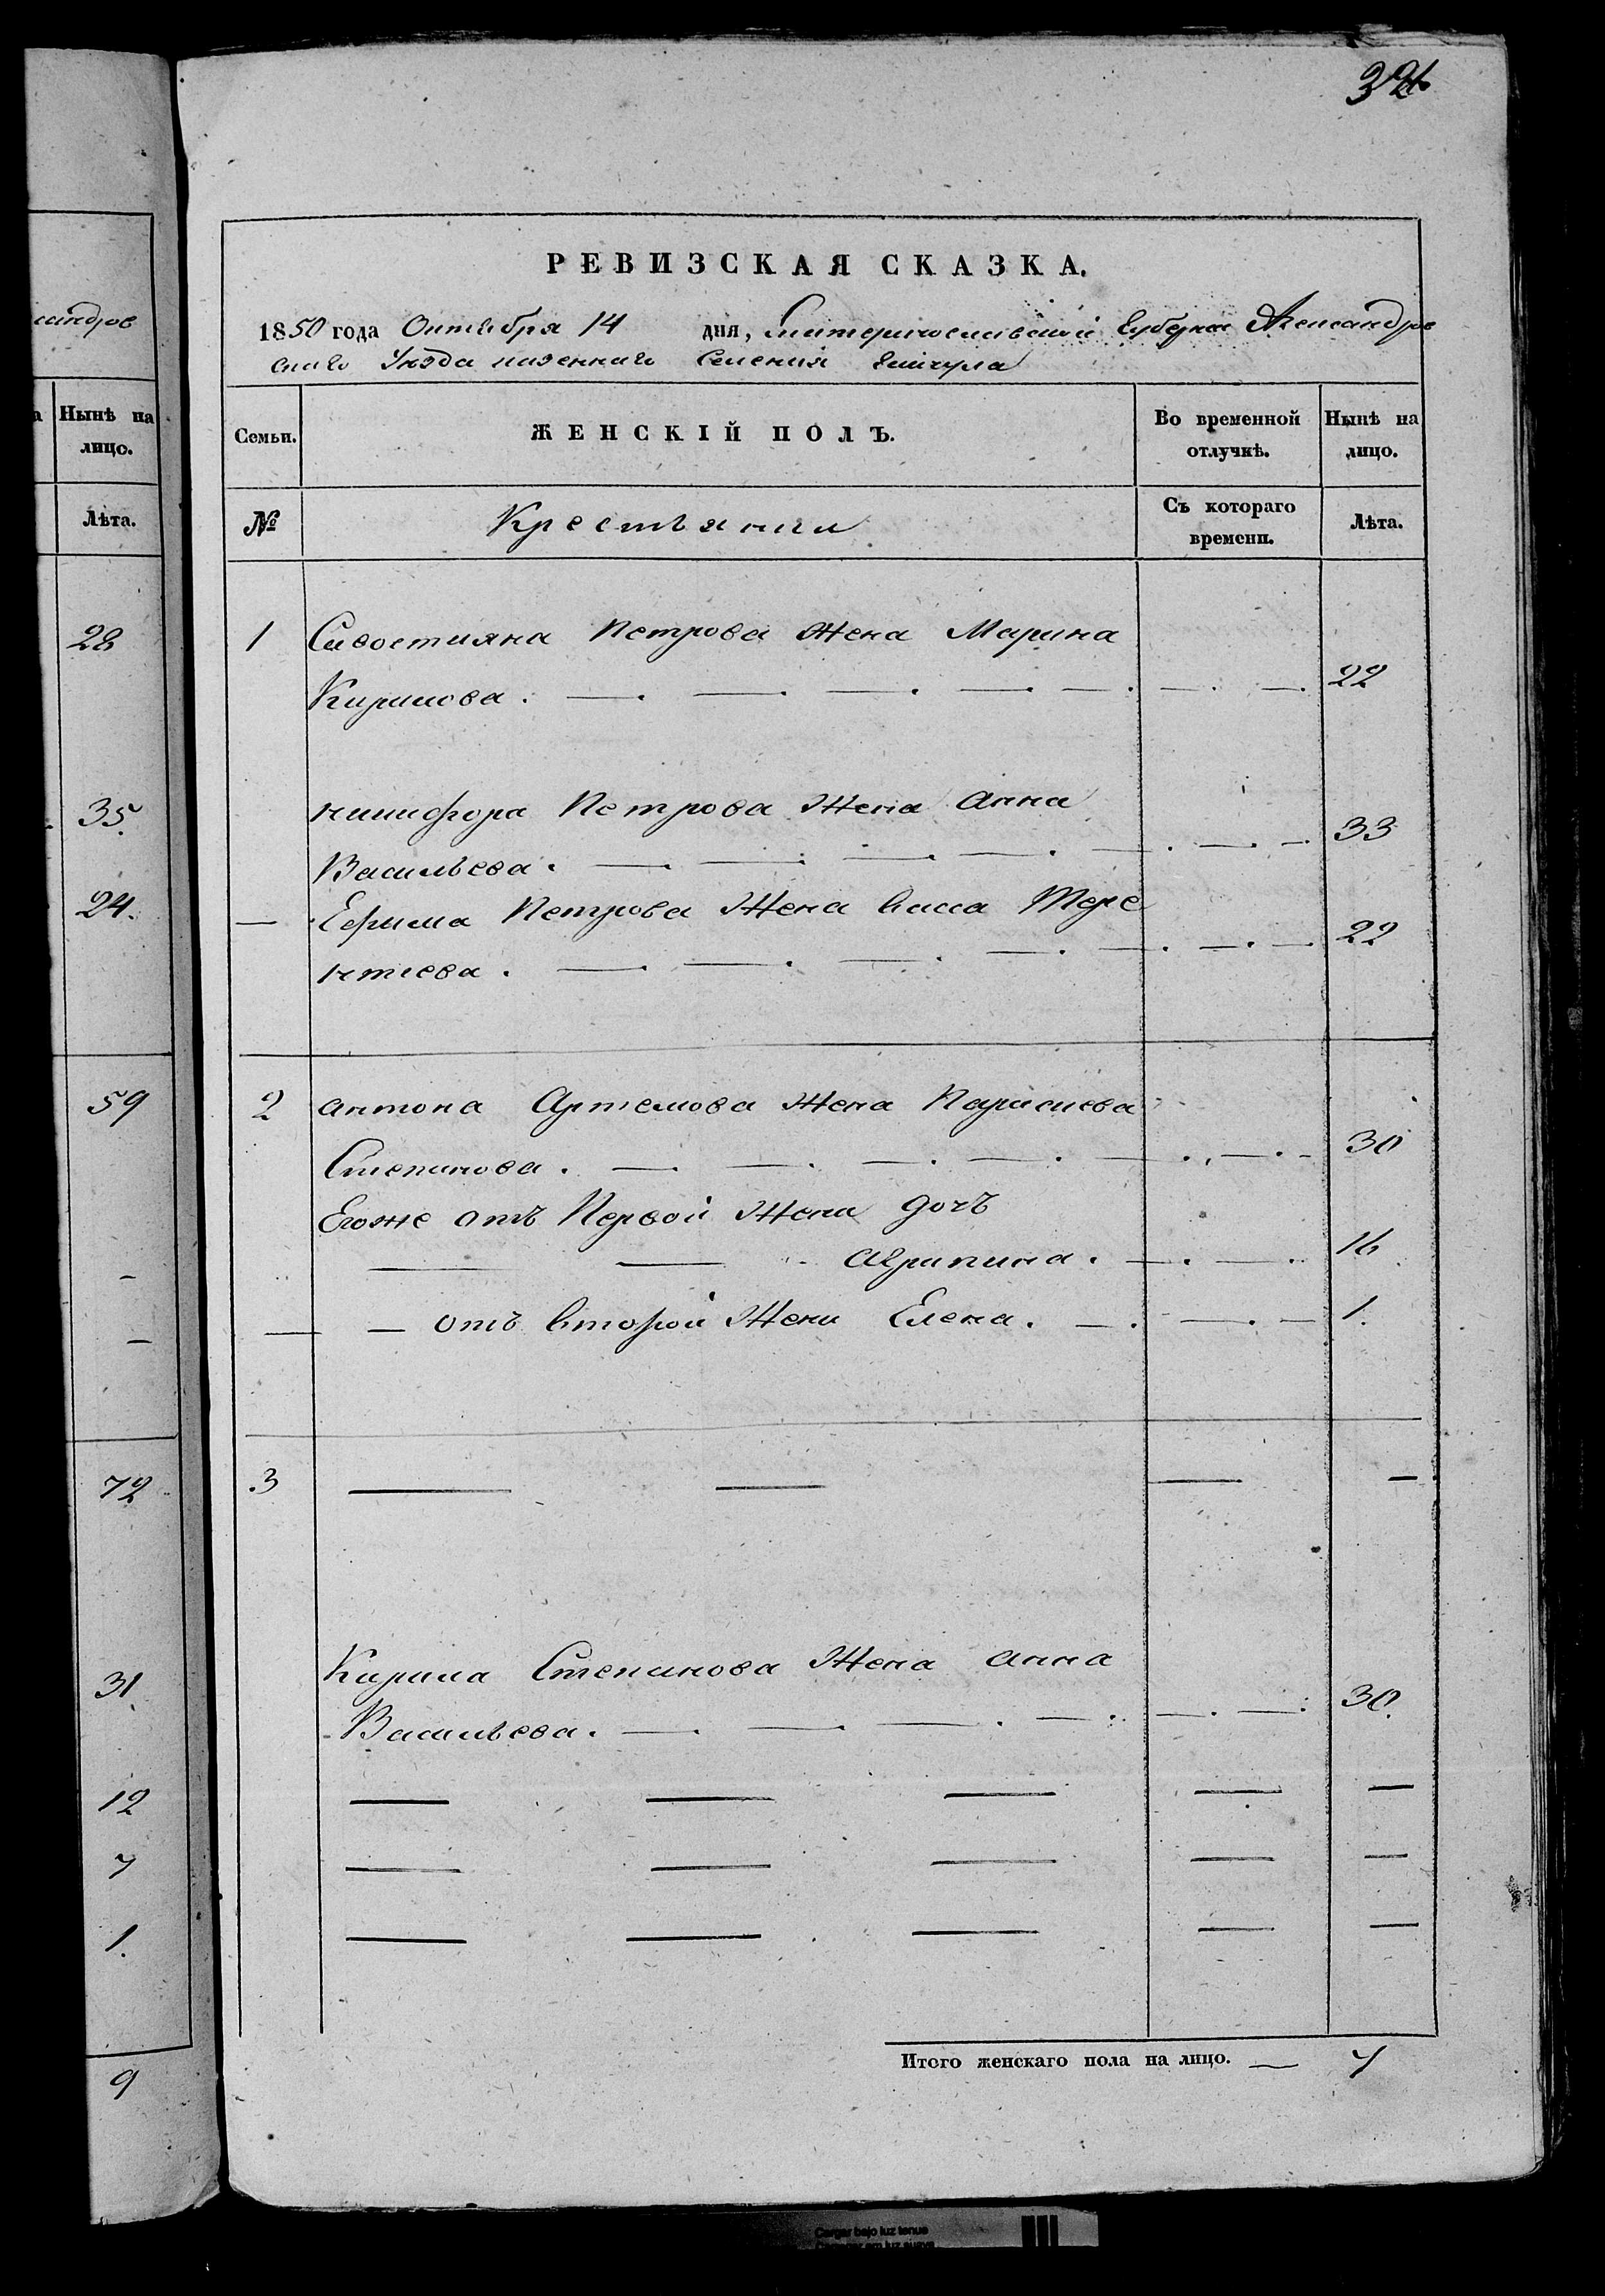 32
РЕВИЗСКАЯ СКАЗКА.
1850 года Октября 14 дня, Екатеринославской Губернии Александров
скаго Уезда казеннаго Селения
Семьи. ЖЕНСКІЙ ПОЛЪ. Во временной отлучкѣ. Нынѣ на лицо.
№ Крестьянки Съ котораго времени. Лѣта.
1 Сивостияна Петрова Жена Марина
Кирилова. 22
никифора Петрова Жена Анна
Васильева. 33
Ефима Петрова Жена Васса Тере
нтиева. 22
2 антона Артемова Жена Параскева
Степанова. 30
Егоже отъ Первой Жени дочъ
Агрипина. 16
отъ второй Жени Елена. 1.
3
Кирила Степанова Жена анна
Васильева. 30.
Итого женскаго пола на лицо. 7
сандров
а Нынѣ на
лицо.
Лѣта.
28
35.
24.
59
72
31
12
7
1.
9
Cargar bajo luz tenue